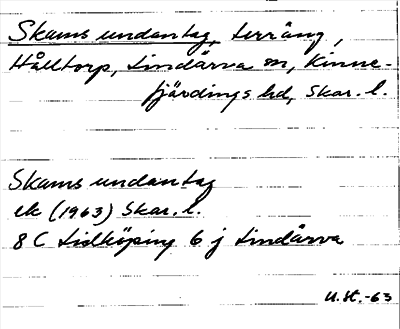 Skams undantag, terräng,
Hålltorp, Lindärva sn, Kinne-
fjärdings hd, Skar. l.
Skams undantag
ek (1963) Skar. l.
8 C Lidköping 6 j Lindärva
U.St.-63